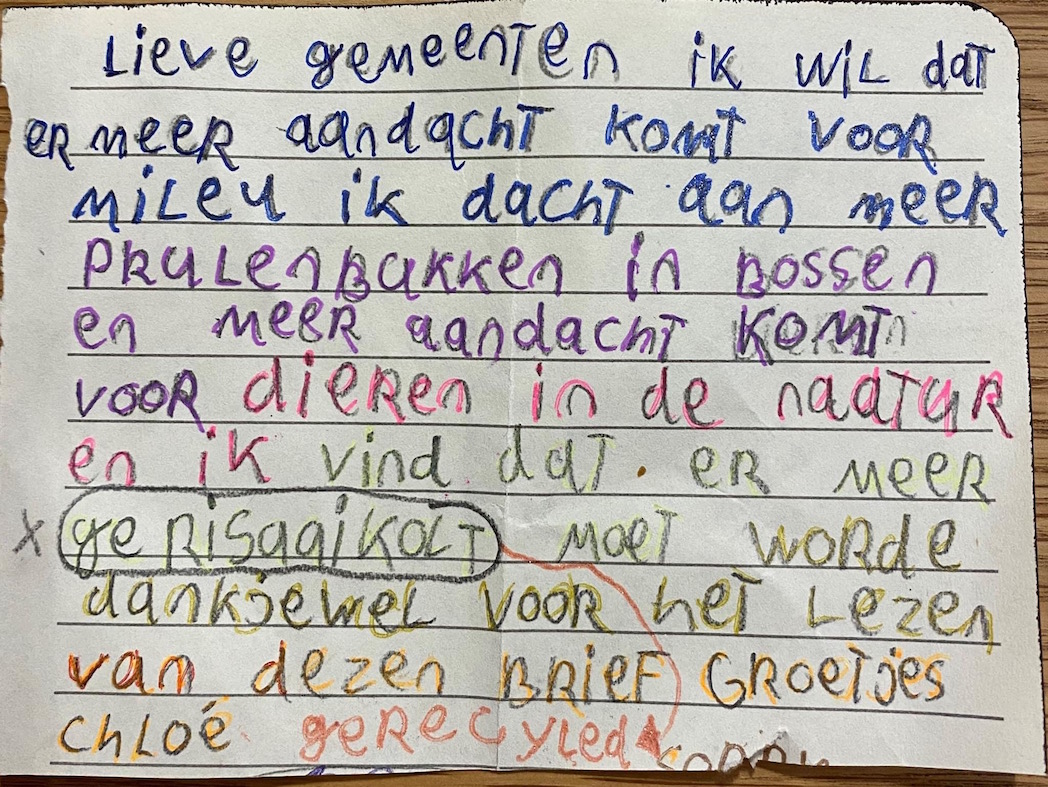 Lieve gemeenten ik wil dat
er meer aandacht komt voor
mileu ik dacht aan meer
prulenbakken in bossen
en meer aandacht komt
voor dieren in de naatuur
en ik vind dat er meer
x gerisaaikolt moet worde
dankjewel voor het lezen
van dezen brief Groetjes
Chloé gerecyled